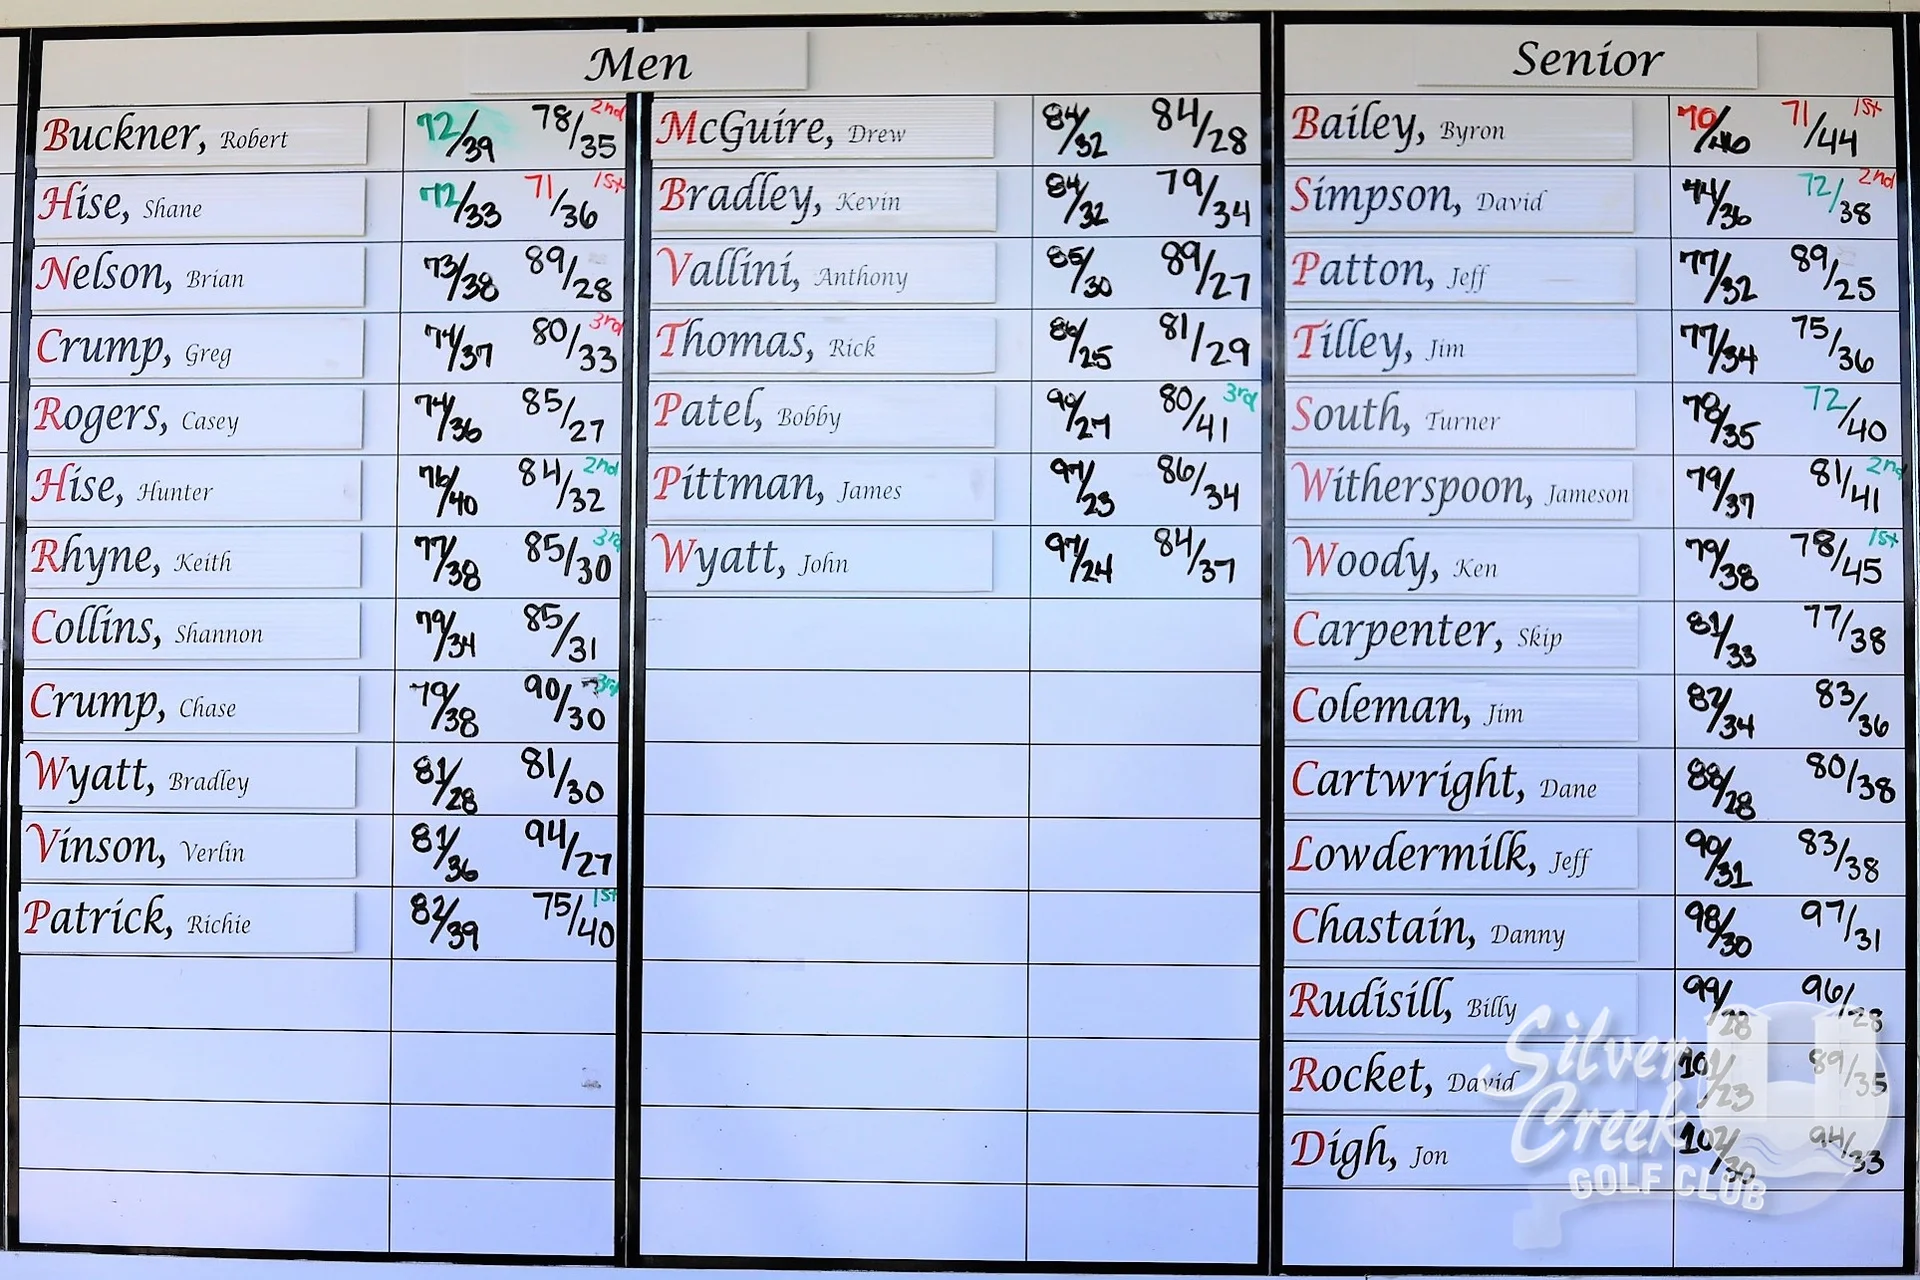 Men
Buckner, Robert 72/39 78/35 2nd
Hise, Shane 72/33 71/36 1st
Nelson, Brian 73/38 89/28
Crump, Greg 74/37 80/33 3rd
Rogers, Casey 74/36 85/27
Hise, Hunter 76/40 84/32 2nd
Rhyne, Keith 77/38 85/30 3rd
Collins, Shannon 79/34 85/31
Crump, Chase 79/38 90/30 3rd
Wyatt, Bradley 81/28 81/30
Vinson, Verlin 81/36 94/27
Patrick, Richie 82/39 75/40 1st
McGuire, Drew 84/32 84/28
Bradley, Kevin 84/32 79/34
Vallini, Anthony 85/30 89/27
Thomas, Rick 86/25 81/29
Patel, Bobby 90/27 80/41 3rd
Pittman, James 97/23 86/34
Wyatt, John 97/24 84/37
Senior
Bailey, Byron 70/46 71/44 1st
Simpson, David /36 72/38 2nd
Patton, Jeff 77/32 89/25
Tilley, Jim 77/34 75/36
South, Turner 78/35 72/40
Witherspoon, Jameson 79/37 81/41 2nd
Woody, Ken 79/38 78/45 1st
Carpenter, Skip 81/33 77/38
Coleman, Jim 82/34 83/36
Cartwright, Dane 88/28 80/38
Lowdermilk, Jeff 90/31 83/38
Chastain, Danny 98/30 97/31
Rudisill, Billy 99/28 96/28
Rocket, David 101/23 89/35
Digh, Jon 102/30 94/33
Silver
Creek
GOLF CLUB